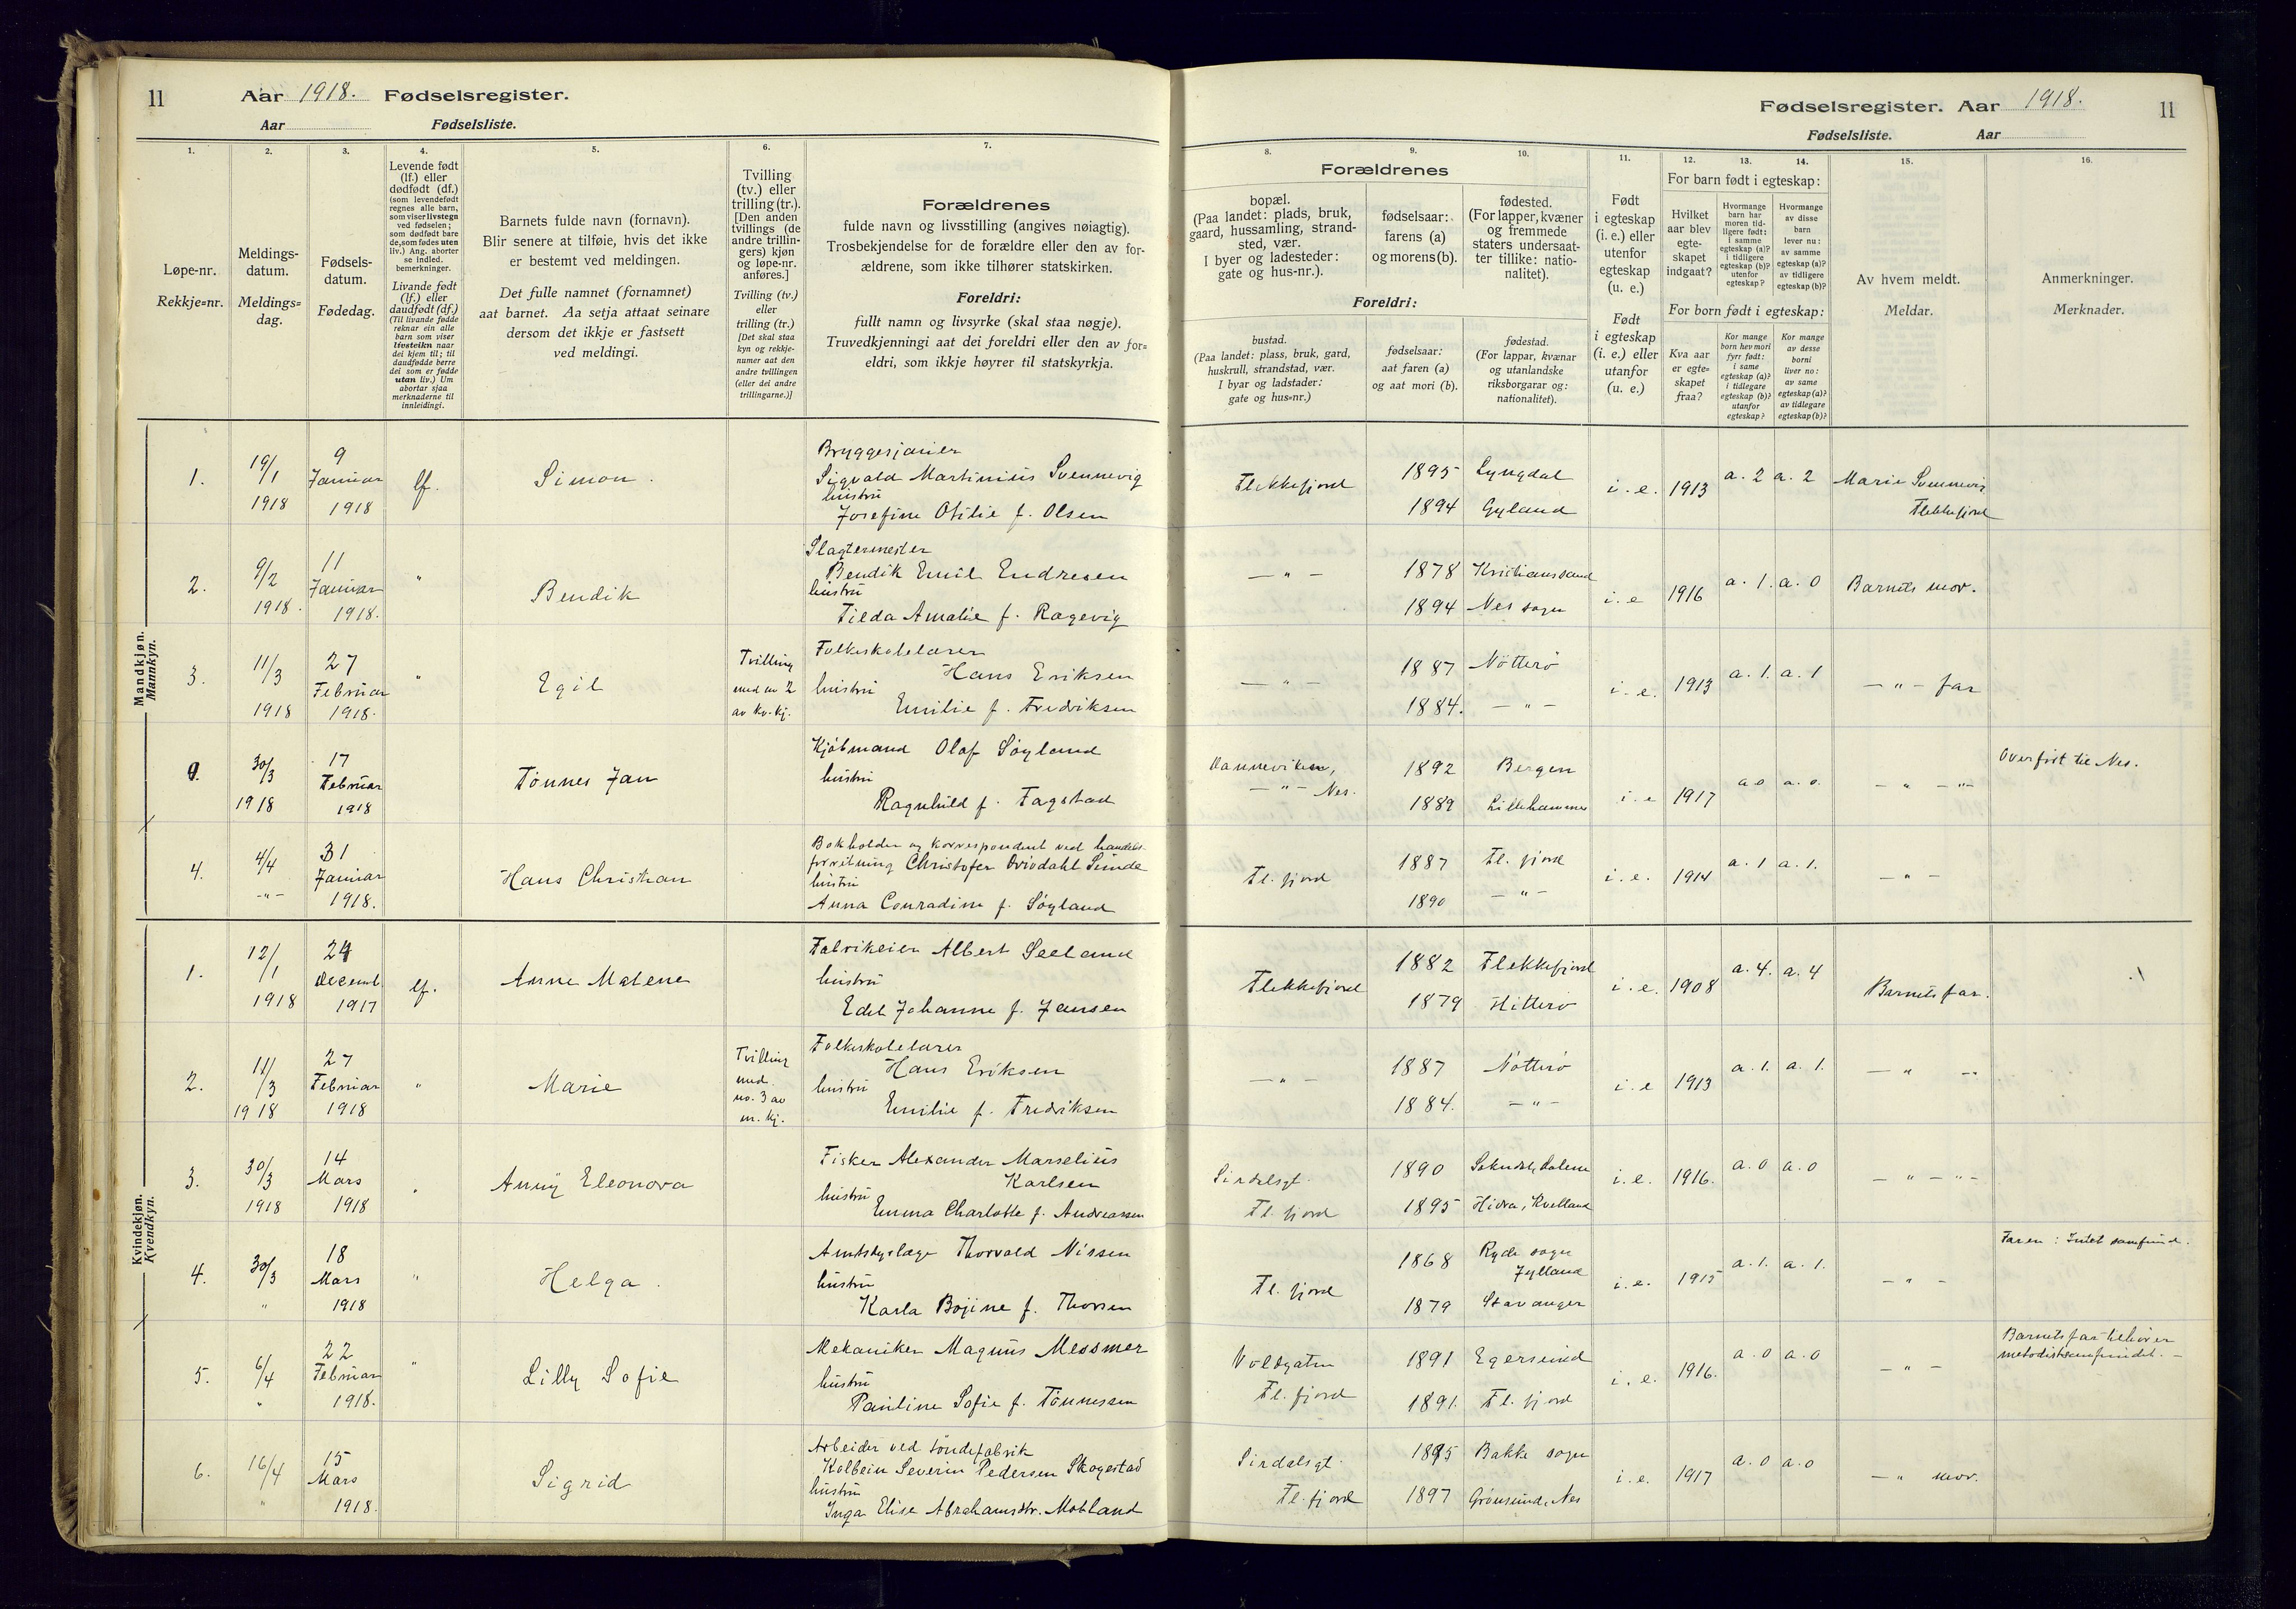 11 Aar 1918. Fødselsregister.
Aar Fødselsliste.
Fødselsregister. Aar 1918. 11
Fødselsliste. Aar
1. 2. 3. 4. 5. 6. 7.
Løpe-nr.
Rekkje=nr.
Meldings-
datum.
Meldings=
dag.
Fødsels-
datum.
Fødedag.
Levende født
(lf.) eller
dødfødt (df.)
(som levendefødt
regnes alle barn,
som viser livstegn
ved fødselen;
som dødfødt bare
de, som fødes uten
liv.) Ang. aborter
se indled.
bemerkninger.
Livande født
(lf.) eller
daudfødt (df.)
(Til livande fødde
reknar ein alle
barn som viser
livsteikn naar
dei kjem til; til
daudfødde berre
dei som er fødde
utan liv.) Um
abortar sjaa
merknaderne til
innleidingi.
Barnets fulde navn (fornavn).
Blir senere at tilføie, hvis det ikke
er bestemt ved meldingen.
Det fulle namnet (fornamnet)
aat barnet. Aa setja attaat seinare
dersom det ikkje er fastsett
ved meldingi.
Tvilling
(tv.) eller
trilling (tr.).
[Den anden
tvillings (de
andre trillin-
gers) kjøn
og løpe-nr.
anføres.]
Tvilling (tv.)
eller
trilling (tr.)
[Det skal staa
kyn og rekkje-
numer aat den
andre tvillingen
(eller dei andre
trillingarne.)]
Forældrenes
fulde navn og livsstilling (angives nøiagtig).
Trosbekjendelse for de forældre eller den av for-
ældrene, som ikke tilhører statskirken.
Foreldri:
fullt namn og livsyrke (skal staa nøgje).
Truvedkjenningi aat dei foreldri eller den av for=
eldri, som ikkje høyrer til statskyrkja.
8. 9. 10. 11. 12. 13. 14. 15. 16.
Forældrenes
bopæl.
(Paa landet: plads, bruk,
gaard, hussamling, strand-
sted, vær.
I byer og ladesteder:
gate og hus-nr.).
fødselsaar:
farens (a)
og morens (b).
fødested.
(For lapper, kvæner
og fremmede
staters undersaat-
ter tillike: natio-
nalitet).
Foreldri:
bustad.
(Paa landet: plass, bruk, gard,
huskrull, strandstad, vær.
I byar og ladstader:
gate og hus=nr.)
fødselsaar:
aat faren (a)
og aat mori (b).
fødestad.
(For lappar, kvænar
og utanlandske
riksborgarar og:
nationalitet).
Født
i egteskap
(i. e.) eller
utenfor
egteskap
(u. e.)
Født
i egteskap
(i. e.) eller
utanfor
(u. e.)
For barn født i egteskap:
Hvilket
aar blev
egte-
skapet
indgaat?
Hvormange
barn har
moren tid-
ligere født:
i samme
egteskap (a)?
i tidligere
egteskap (b)?
utenfor
egteskap?
Hvormange
av disse
barn
lever nu:
av samme
egteskap (a)?
av tidligere
egteskap (b)?
For born født i egteskap:
Kva aar
er egte=
skapet
fraa?
Kor mange
born hev mori
fyrr født:
i same
egteskap (a)?
i tidlegare
egteskap (b)?
utanfor
egteskap?
Kor mange
av desse
borni
liver no:
av same
egteskap (a)?
av tidlegare
egteskap (b)?
Av hvem meldt.
Meldar.
Anmerkninger.
Merknader.
Mandkjøn.
Mannkyn.
1. 19/1 1918 9 Januar 1918 lf. Simon.
Bryggesjauer
Sigvald Martinius Svennevig
hustru
Josefine Otilie f. Olsen
Flekkefjord 1895 Lyngdal
1894 Gyland
i. e. 1913 a. 2 a. 2 Marie Svennevig
Flekkefjord
2. 9/2 1918. 11 Januar 1918. " Bendik
Slagtermester
Bendik Emil Endresen
hustru
Tilda Amalie f. Ragevig
— " — 1878 Kristianssand
1894 Nes sogn
i. e 1916 a. 1. a. 0 Barnets mor.
3. 11/3 1918 27 Februar 1918. " Egil
Tvilling
med nr 2
av kv. kj.
Folkeskolelærer
Hans Eriksen
hustru
Emilie f. Fredriksen
— " — 1887 Nøtterø
1884. — " —
i. e. 1913 a. 1. a. 1 — " — far
30/3 1918 17 Februar 1918 Tønnes Jan
Kjøbmand Olaf Søyland
hustru
Ragnhild f. Fagstad
Vanneviken,
— " — Nes.
1892 Bergen
1889 Lillehammer
i. e 1917 a 0 a. 0. — " — " —
Overført til Nes.
4. 4/4 — " — 31 Januar 1918. Hans Christian
Bokholder og korrespondent ved handels-
forretning Christofer Sunde
hustru
Anna Conradine f. Søyland
Fl. fjord 1887 Fl. fjord
1890 — " —
i. e. 1914 a. 1 a. 1. — " —
Kvindekjøn.
Kvendkyn.
1. 12/1 1918 24 Decemb. 1917 lf. Anne Malene
Fabrikeier Albert Seeland
hustru
Edel Johanne f. Jansen
Flekkefjord 1882 Flekkefjord
1879 Hitterø
i. e. 1908 a. 4. a. 4 Barnets far.
2. 11/3 1918 27 Februar 1918 " Marie
Tvilling
med.
no. 3 av
m. kj.
Folkeskolelærer
Hans Eriksen
hustru
Emilie f. Fredriksen
— " — 1887 Nøtterø
1884. — " —
i. e 1913 a. 1. a. 1. — " —
3. 30/3 1918 14 Mars 1918 " Anny Eleonora
Fisker Alexander Marselius
Karlsen
hustru
Emma Charlotte f. Andreassen
Sirdalsgt.
Fl. fjord
1890 Sokndal,
1895 Hidra, Kvelland
i. e. 1916. a. 0 a. 0 — " — " —
4. 30/3 " 18 Mars 1918 " Helga.
Amtsdyrlæge Thorvald Nissen
hustru
Karla Bojine f. Thorsen
Fl. fjord 1868 Ryde sogn
Jylland
1879 Stavanger
i. e. 1915 a. 1. a. 1. — " —
Faren: Intet samfund.
5. 6/4 " 22 Februar 1918. " Lilly Sofie
Mekaniker Magnus Messmer
hustru
Pauline Sofie f. Tønnessen
Voldgaten
Fl. fjord
1891 Egersund
1891. Fl. fjord
i. e. 1916. a. 0 a. 0 — " —
Barnets far tilhører
metodistsamfundet. —
6. 16/4 " 15 Mars 1918. Sigrid
Arbeider ved tøndefabrik
Kolbein Severin Pedersen Skogestad
hustru
Inga Elise Abrahamsdtr. Mobland
Sirdalsgt.
Fl. fjord
1895 Bakke sogn
1897 Grønsund, Nes
i. e. 1917 a. 0 a. 0 — " mor.